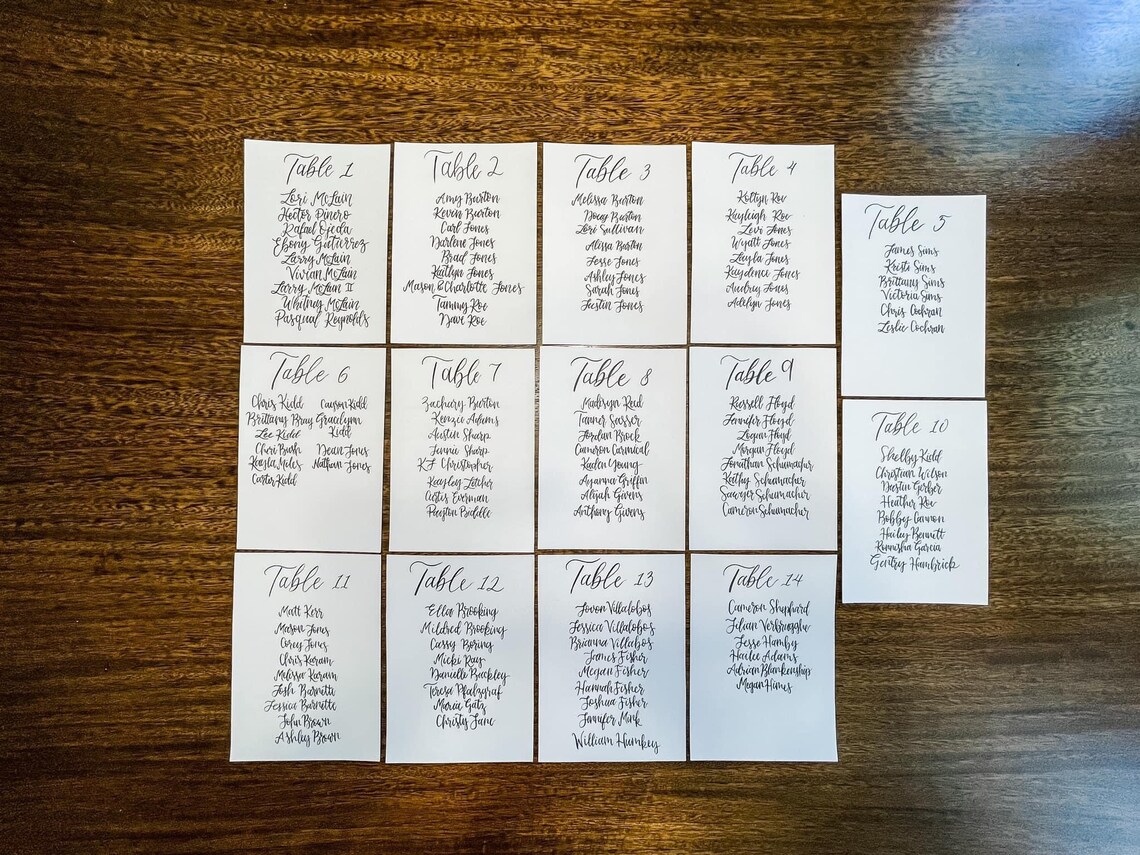 Table 1
Lori McLain
Hector Pinero
Rafael Ojeda
Ebony Gutierrez
Larry McLain
Vivian McLain
Larry McLain II
Whitney McLain
Pasqual Reynolds
Table 2
Amy Burton
Kevin Burton
Carl Jones
Darlene Jones
Brad Jones
Kaitlyn Jones
Mason & Charlotte Jones
Tammy Roe
Dave Roe
Table 3
Melissa Burton
Doug Burton
Lori Sullivan
Alissa Burton
Jesse Jones
Ashley Jones
Sarah Jones
Justin Jones
Table 4
Koltyn Roe
Kayleigh Roe
Levi Jones
Wyatt Jones
Layla Jones
Kaydence Jones
Audrey Jones
Adelyn Jones
Table 5
James Sims
Kristi Sims
Brittany Sims
Victoria Sims
Chris Cochran
Leslie Cochran
Table 6
Chris Kidd
Brittany Bray
Lee Kidd
Cheri Bush
Kayla Moles
Carter Kidd
Cayson Kidd
Gracelynn
Kidd
Dean Jones
Nathan Jones
Table 7
Zachary Burton
Kenzie Adams
Austin Sharp
Jennie Sharp
KJ Christopher
Kayley Letcher
Curtis Everman
Payton Priddle
Table 8
Madisyn Reid
Tanner Sasser
Jordan Brock
Cameron Carmical
Kaden Young
Ayanna Griffin
Alijah Givens
Anthony Givens
Table 9
Russell Floyd
Jennifer Floyd
Logan Floyd
Morgan Floyd
Jonathan Schumacher
Kathy Schumacher
Sawyer Schumacher
Cameron Schumacher
Table 10
Shelby Kidd
Christian Wilson
Dustin Gerber
Heather Roe
Bobby Cannon
Hailey Bennett
Ronnisha Garcia
Gentry Hambrick
Table 11
Matt Kerr
Mason Jones
Corey Jones
Chris Karam
Melissa Karam
Josh Barnette
Jessica Barnette
John Brown
Ashley Brown
Table 12
Ella Brooking
Mildred Brooking
Cassy Boring
Micki Ray
Danielle Buckley
Teresa Pfalzgraf
Maria Gatz
Christy Jane
Table 13
Jovon Villalobos
Jessica Villalobos
Brianna Villabos
James Fisher
Megan Fisher
Hannah Fisher
Joshua Fisher
Jennifer Mink
William Humkey
Table 14
Cameron Shephard
Jilian Verbrugghe
Jesse Hamby
Hailee Adams
Adrian Blankenship
Megan Himes